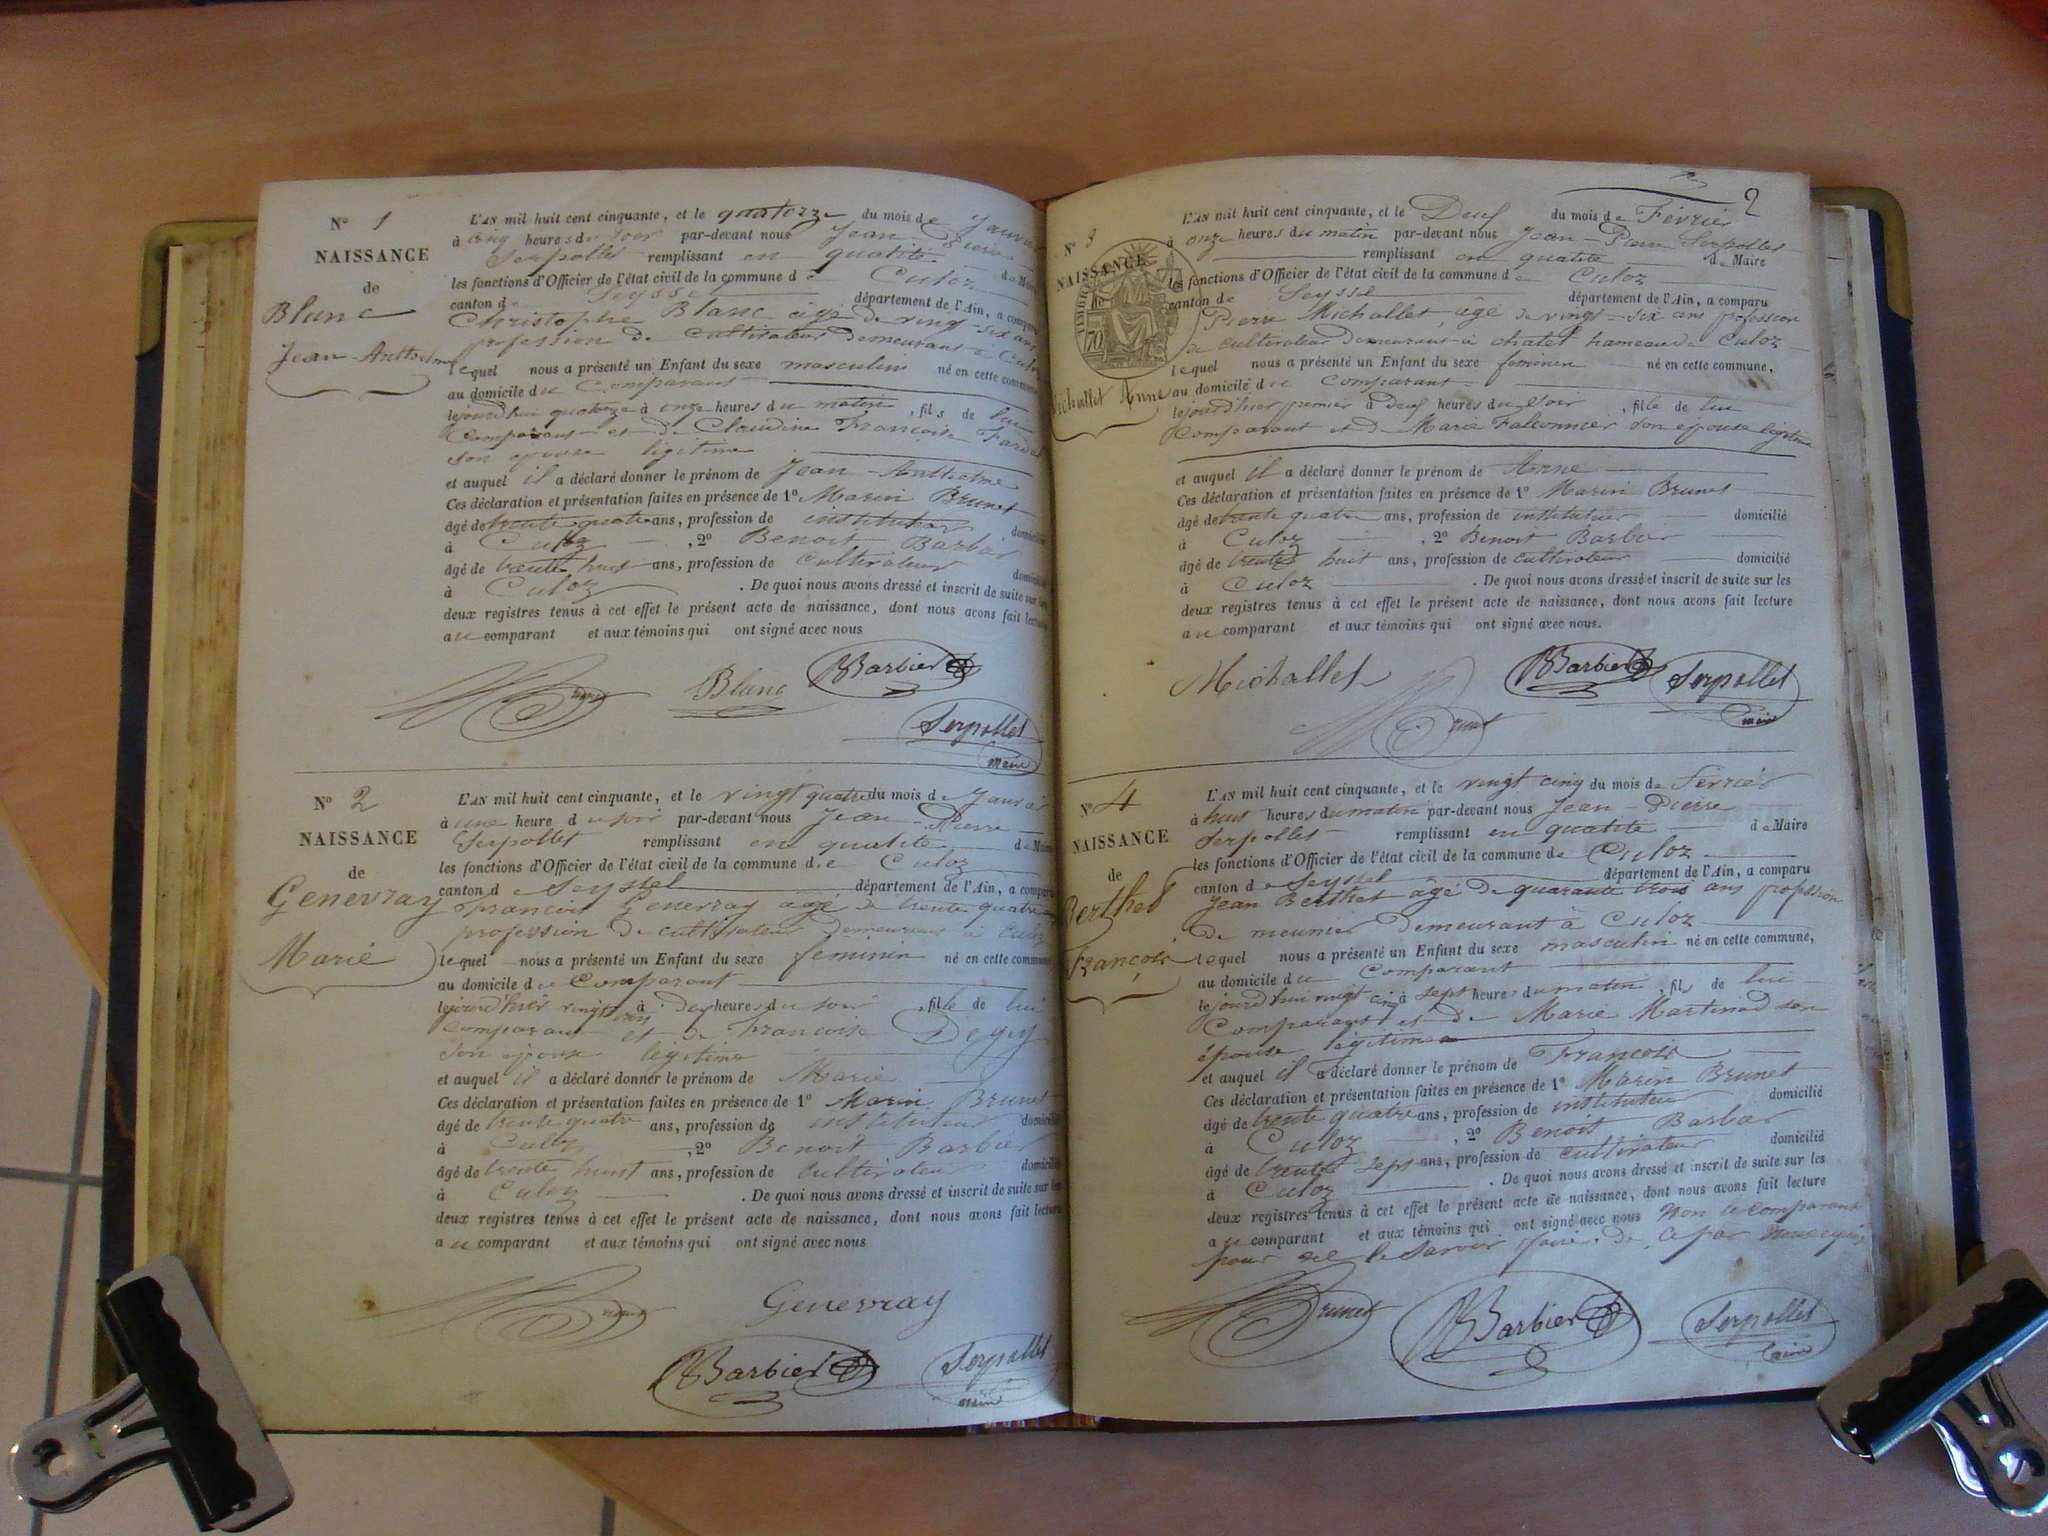 N° 1
NAISSANCE
de
Blanc
Jean-Anthelme
L'AN mil huit cent cinquante, et le quatorze du mois de Janvier
à cinq heures du soir par-devant nous Jean-Pierre
Serpollet remplissant en qualité de Maire
les fonctions d'Officier de l'état civil de la commune de Culoz
canton de Seyssel département de l'Ain, a comparu
Christophe Blanc âgé de vingt-six ans
profession de cultivateur demeurant à Culoz
lequel nous a présenté un Enfant du sexe masculin né en cette commune,
au domicile du Comparant
lejourd'hui quatorze à onze heures du matin, fils de lui
Comparant et de Claudine Françoise
son epouse légitime
et auquel il a déclaré donner le prénom de Jean-Anthelme
Ces déclaration et présentation faites en présence de 1° Marin Brunet
âgé de trente quatre ans, profession de instituteur domicilié
à Culoz, 2° Benoit Barbier
âgé de trente huit ans, profession de cultivateur domicilié
à Culoz. De quoi nous avons dressé et inscrit de suite sur les
deux registres tenus à cet effet le présent acte de naissance, dont nous avons fait lecture
au comparant et aux témoins qui ont signé avec nous
Brunet Blanc Barbier
Serpollet
maire
N° 2
NAISSANCE
de
Genevray
Marie
L'AN mil huit cent cinquante, et le vingt quatre du mois de Janvier
à une heure du soir par-devant nous Jean-Pierre
Serpollet remplissant en qualité de Maire
les fonctions d'Officier de l'état civil de la commune de Culoz
canton de Seyssel département de l'Ain, a comparu
François Genevray âgé de trente quatre ans
profession de cultivateur demeurant à Culoz
lequel nous a présenté un Enfant du sexe feminin né en cette commune
au domicile du Comparant
lejourd'hier vingt trois à deux heures du soir, fille de lui
comparant et de Françoise
son epouse légitime
et auquel il a déclaré donner le prénom de Marie
Ces déclaration et présentation faites en présence de 1° Marin Brunet
âgé de trente quatre ans, profession de instituteur domicilié
à Culoz, 2° Benoit Barbier
âgé de trente huit ans, profession de cultivateur domicilié
à Culoz. De quoi nous avons dressé et inscrit de suite sur les
deux registres tenus à cet effet le présent acte de naissance, dont nous avons fait lecture
au comparant et aux témoins qui ont signé avec nous
Brunet Genevray
Barbier Serpollet
maire
2
N° 3
NAISSANCE
Michallet Anne
L'AN mil huit cent cinquante, et le Deux du mois de Février
à onze heures du matin par-devant nous Jean-Pierre Serpollet
remplissant en qualité de Maire
les fonctions d'Officier de l'état civil de la commune de Culoz
canton de Seyssel département de l'Ain, a comparu
Pierre Michallet, âgé de vingt-six ans profession
de cultivateur demeurant à chatel hameau de Culoz
lequel nous a présenté un Enfant du sexe feminin né en cette commune,
au domicile du Comparant
lejourd'hier premier à Deux heures du soir, fille de lui
Comparant et de Marie Falconnier son epouse légitime
et auquel il a déclaré donner le prénom de Anne
Ces déclaration et présentation faites en présence de 1° Marin Brunet
âgé de trente quatre ans, profession de instituteur domicilié
à Culoz, 2° Benoit Barbier
âgé de trente huit ans, profession de cultivateur domicilié
à Culoz. De quoi nous avons dressé et inscrit de suite sur les
deux registres tenus à cet effet le présent acte de naissance, dont nous avons fait lecture
au comparant et aux témoins qui ont signé avec nous.
Michallet Barbier Serpollet
Brunet maire
N° 4
NAISSANCE
de
Berthet
François
L'AN mil huit cent cinquante, et le vingt cinq du mois de Février
à huit heures du matin par-devant nous Jean-Pierre
Serpollet remplissant en qualité de Maire
les fonctions d'Officier de l'état civil de la commune de Culoz
canton de Seyssel département de l'Ain, a comparu
Jean Berthet âgé de quarante trois ans profession
de meunier demeurant à Culoz
lequel nous a présenté un Enfant du sexe masculin né en cette commune,
au domicile du Comparant
lejourd'hui vingt cinq à sept heures du matin, fils de lui
Comparant et de Marie Martinod son
épouse légitime
et auquel il a déclaré donner le prénom de François
Ces déclaration et présentation faites en présence de 1° Marin Brunet
âgé de trente quatre ans, profession de instituteur domicilié
à Culoz, 2° Benoit Barbier
âgé de trente sept ans, profession de cultivateur domicilié
à Culoz. De quoi nous avons dressé et inscrit de suite sur les
deux registres tenus à cet effet le présent acte de naissance, dont nous avons fait lecture
au comparant et aux témoins qui ont signé avec nous non le comparant
pour ne le savoir faire. de ce par nous
Brunet Barbier Serpollet
maire